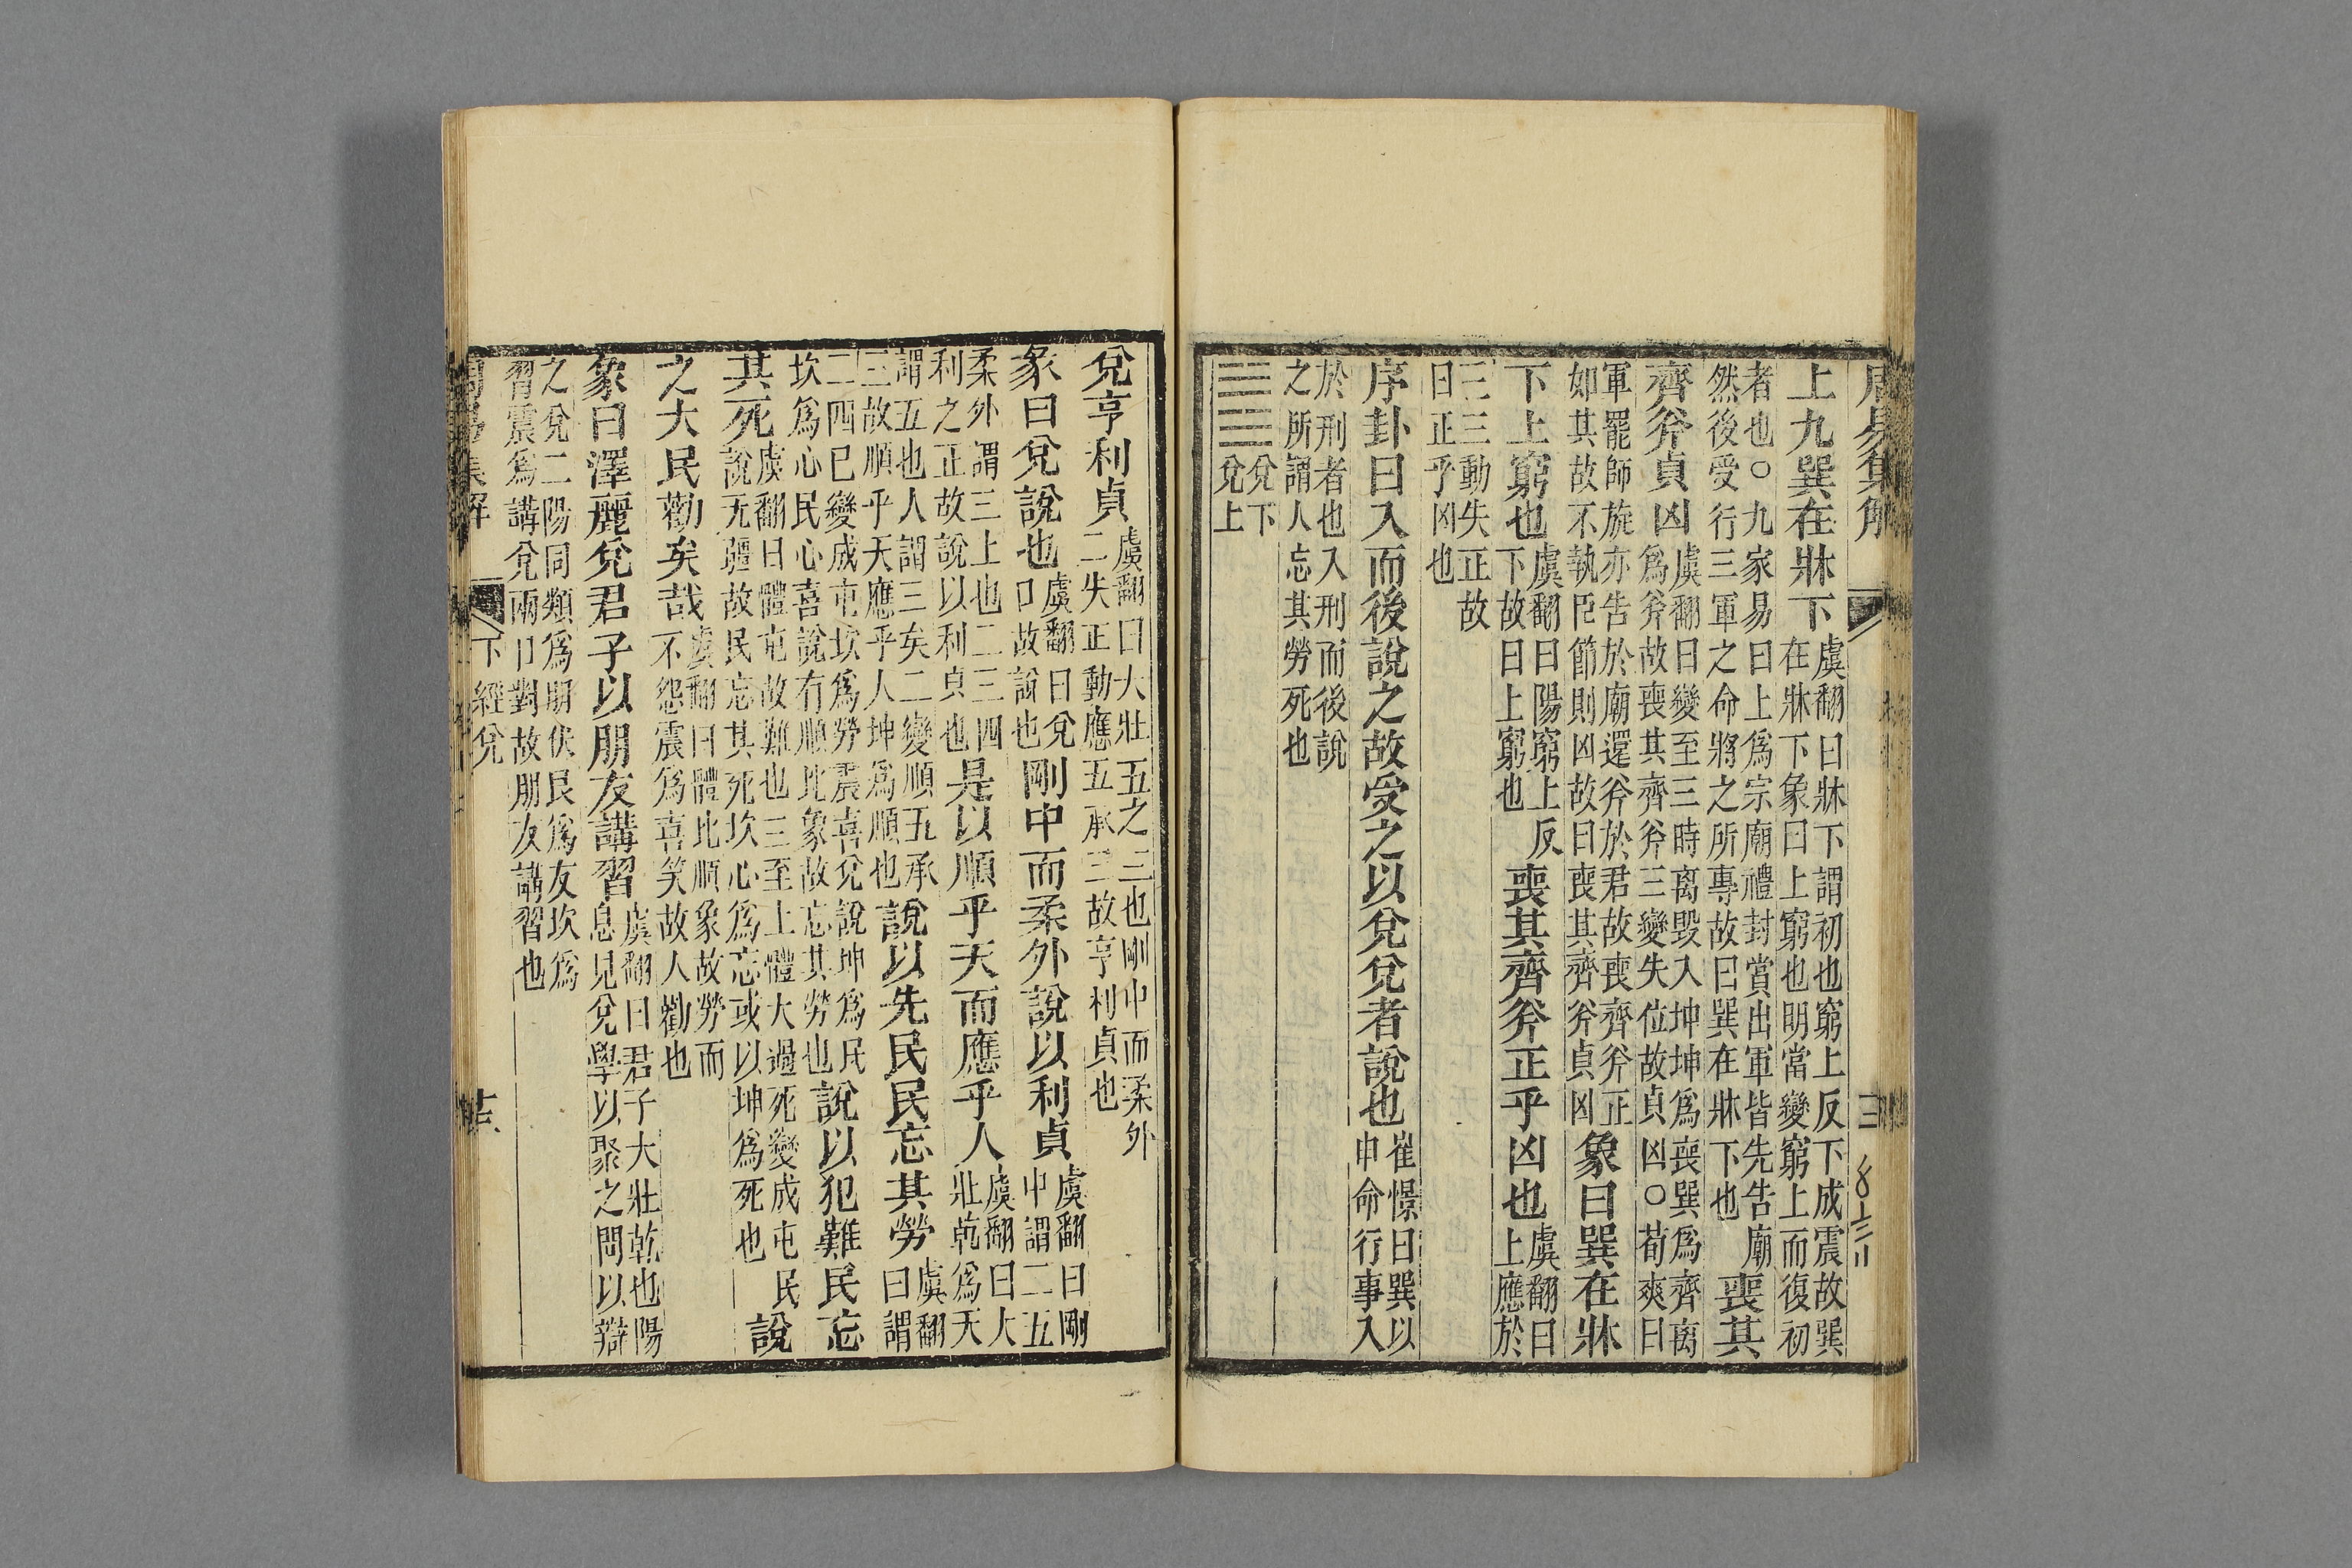 周易集解
三
上九巽在牀下虞翻曰牀下謂初也窮上反下成震故巽在牀下象曰上窮也明當變窮上而復初
者也○九家易曰上爲宗廟禮封賞出軍皆先告廟然後受行三軍之命將之所專故曰巽在牀下也喪其
齊斧貞凶虞翻曰變至三時离毀入坤坤爲喪巽爲齊离爲斧故喪其齊斧三變失位故貞凶○荀爽曰
軍罷師旋亦告於廟還斧於君故喪齊斧正如其故不執臣節則凶故曰喪其齊斧貞凶象曰巽在牀
下上窮也虞翻曰陽窮上反下故曰上窮也喪其齊斧正乎凶也虞翻曰上應於
三三動失正故曰正乎凶也
序卦曰入而後說之故受之以兌兌者說也崔憬曰巽以申命行事入
於刑者也入刑而後說之所謂人忘其勞死也
兌下兌上
兌亨利貞虞翻曰大壯五之三也剛中而柔外二失正動應五承三故亨利貞也
彖曰兌說也虞翻曰兌口故說也剛中而柔外說以利貞虞翻曰剛中謂二五
柔外謂三上也二三四利之正故說以利貞也是以順乎天而應乎人虞翻曰大壯乾爲天
謂五也人謂三矣二變順五承三故順乎天應乎人坤爲順也說以先民民忘其勞虞翻曰謂
二四已變成屯坎爲勞震喜兌說坤爲民坎爲心民心喜說有順比象故忘其勞也說以犯難民忘
其死虞翻曰體屯故難也三至上體大過死變成屯民說无疆故民忘其死坎心爲忘或以坤爲死也說
之大民勸矣哉虞翻曰體比順象故勞而不怨震爲喜笑故人勸也
象曰澤麗兌君子以朋友講習虞翻曰君子大壯乾也陽息見兌學以聚之問以辯
之兌二陽同類爲朋伏艮爲友坎爲習震爲講兌兩口對故朋友講習也
周易集解
下經兌